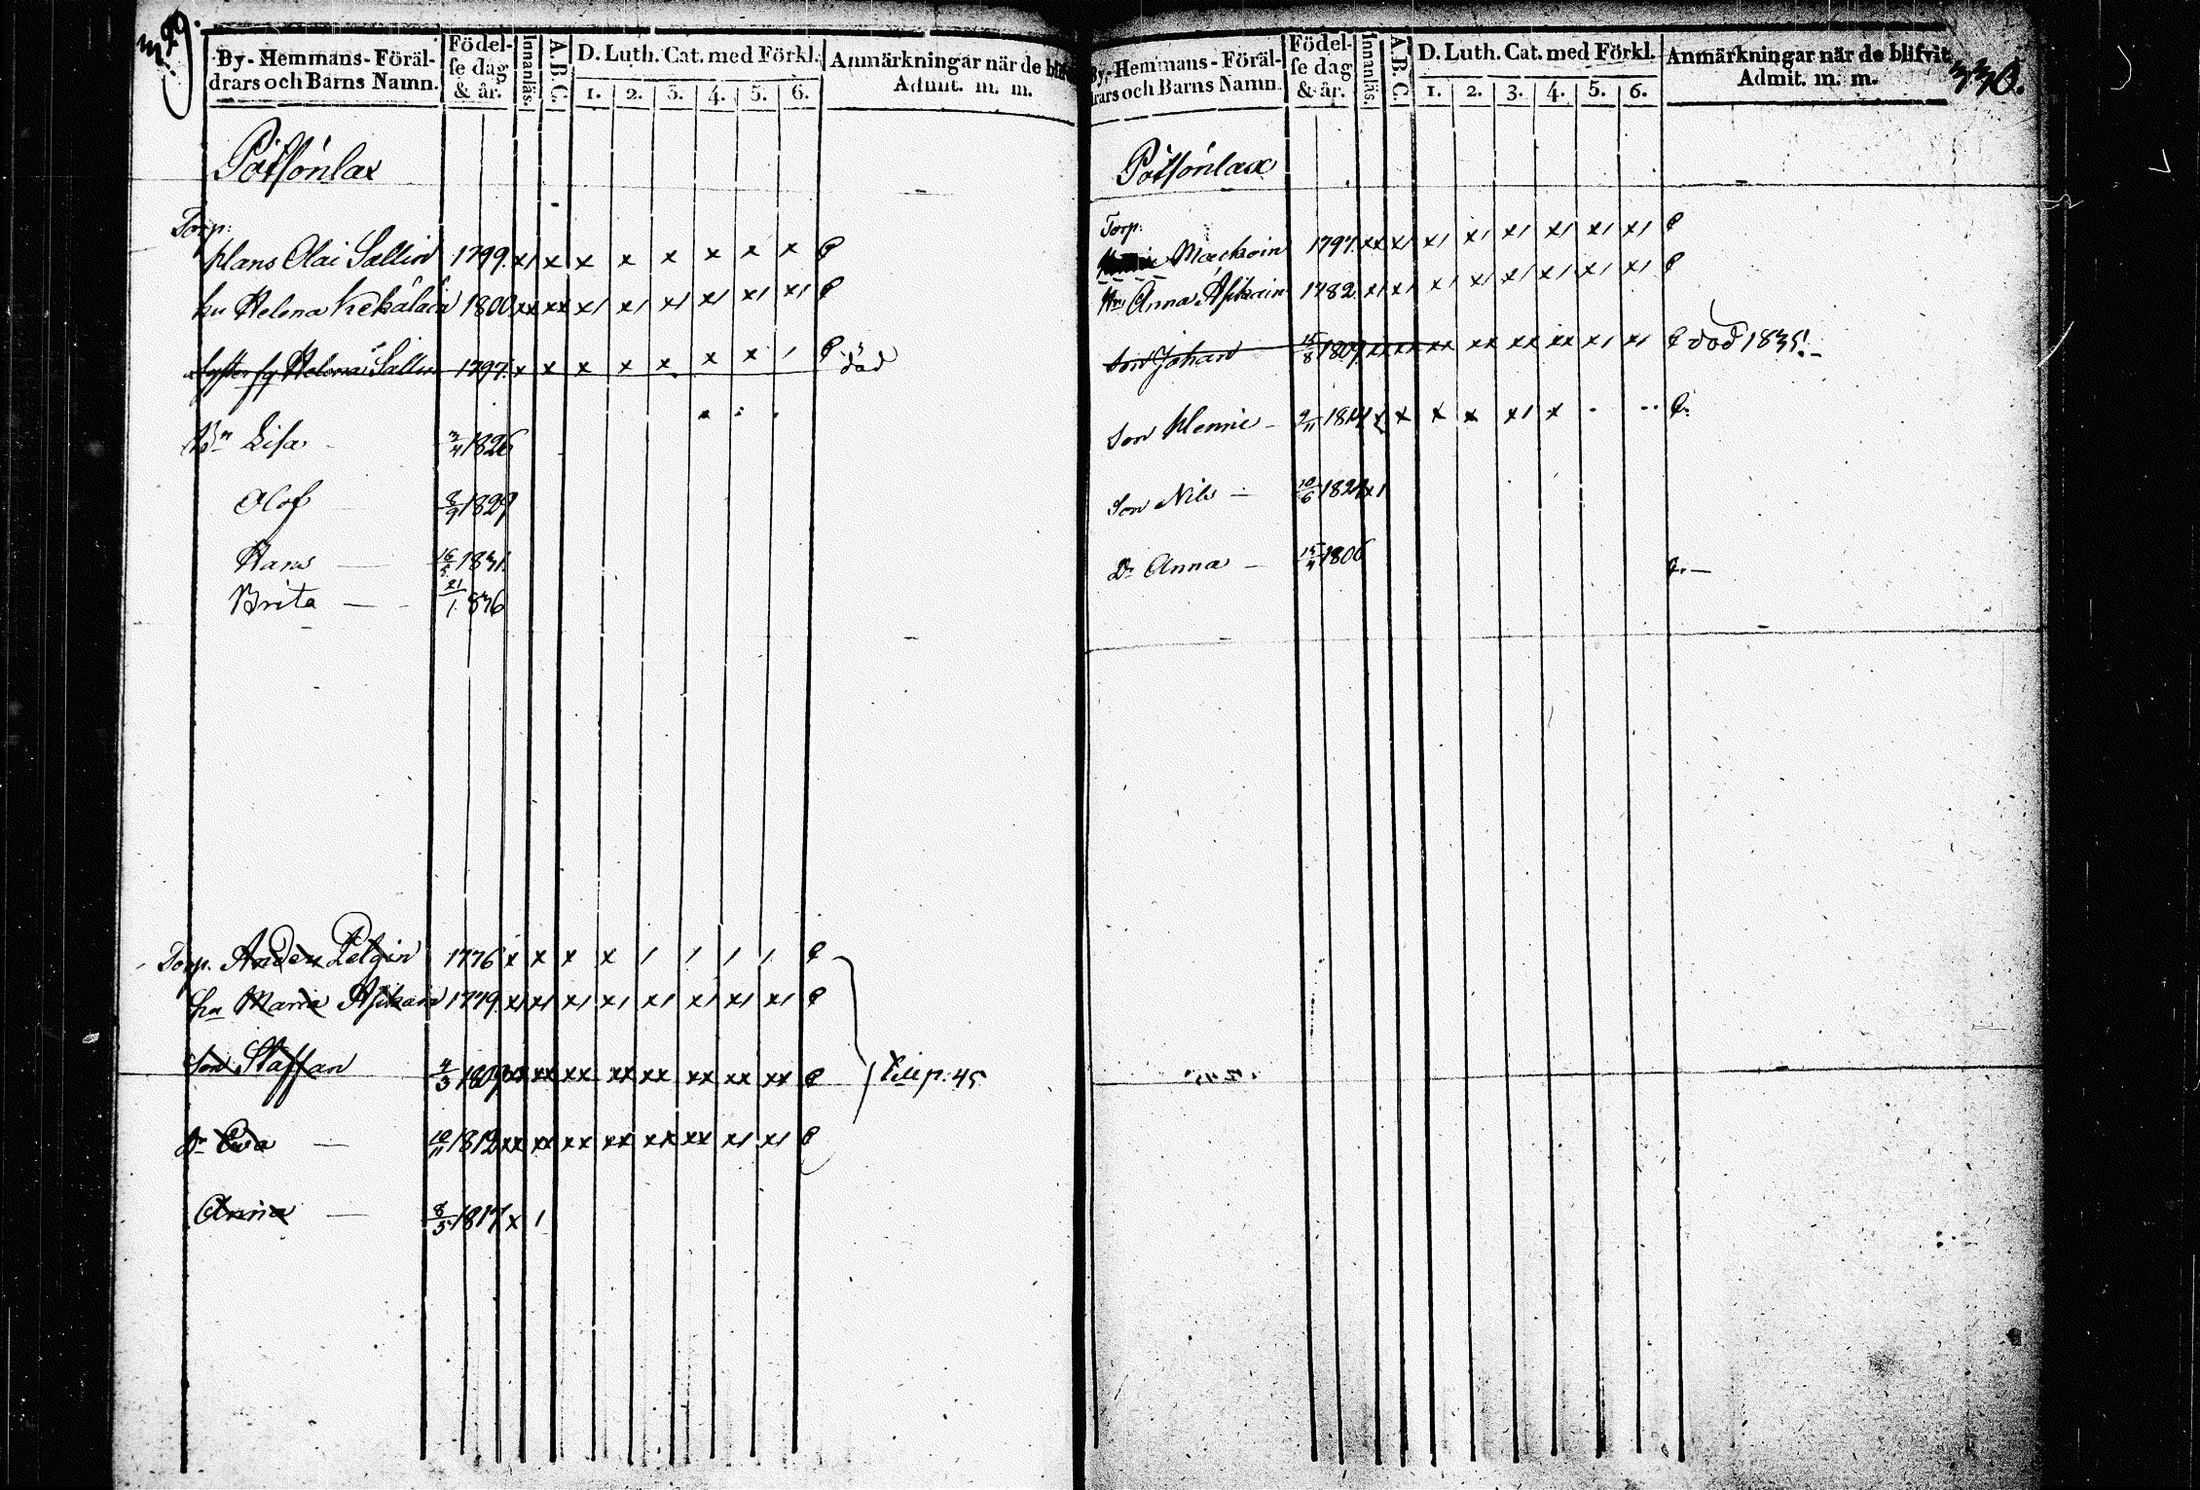 329.
By-Hemmans-Föräl-
drars och Barns Namn.
Födel-
se dag
& år.
Innanläs.
A.B.C.
D. Luth. Cat. med Förkl.
1. 2. 3. 4. 5. 6.
Anmärkningar när de blifvit
Admit. m. m.
Pötsönlax
Torp:
Hans Olai Sallin 1799. x1 x x x x x x x
hu Helena Kekäläin 1800 xx xx x1 x1 x1 x1 x1 x1
Helena Sallin 1797. x x x x x x x 1 död
Lisa 1826
Olof 8/9 1829
Hans 16/5 1831
Brita 21/1 1836
Torp. Anders 1776 x x x x 1 1 1 1
hu Maria 1779. x1 x1 x1 x1 x1 x1 x1 x1
Son Staffan 4/3 1809 xx xx xx xx xx xx xx
p. 45
Dr Eva 10/11 1812 xx xx xx xx xx xx x1 x1
Anna 8/5 1817 x 1
330.
By-Hemmans-Föräl-
drars och Barns Namn.
Födel-
se dag
& år.
Innanläs.
A.B.C.
D. Luth. Cat. med Förkl.
1. 2. 3. 4. 5. 6.
Anmärkningar när de blifvit
Admit. m. m.
Pötsönlax
Torp:
1797. xx x1 x1 x1 x1 x1 x1 x1
Anna 1782. x1 x1 x1 x1 x1 x1 x1 x1
Son Johan 15/8 1809 xx xx xx xx xx xx x1 x1 död 1835.
Son Henric 9/11 1814 x x x x1 x
Son Nils 10/6 1821 x1
Dr Anna 15/4 1806